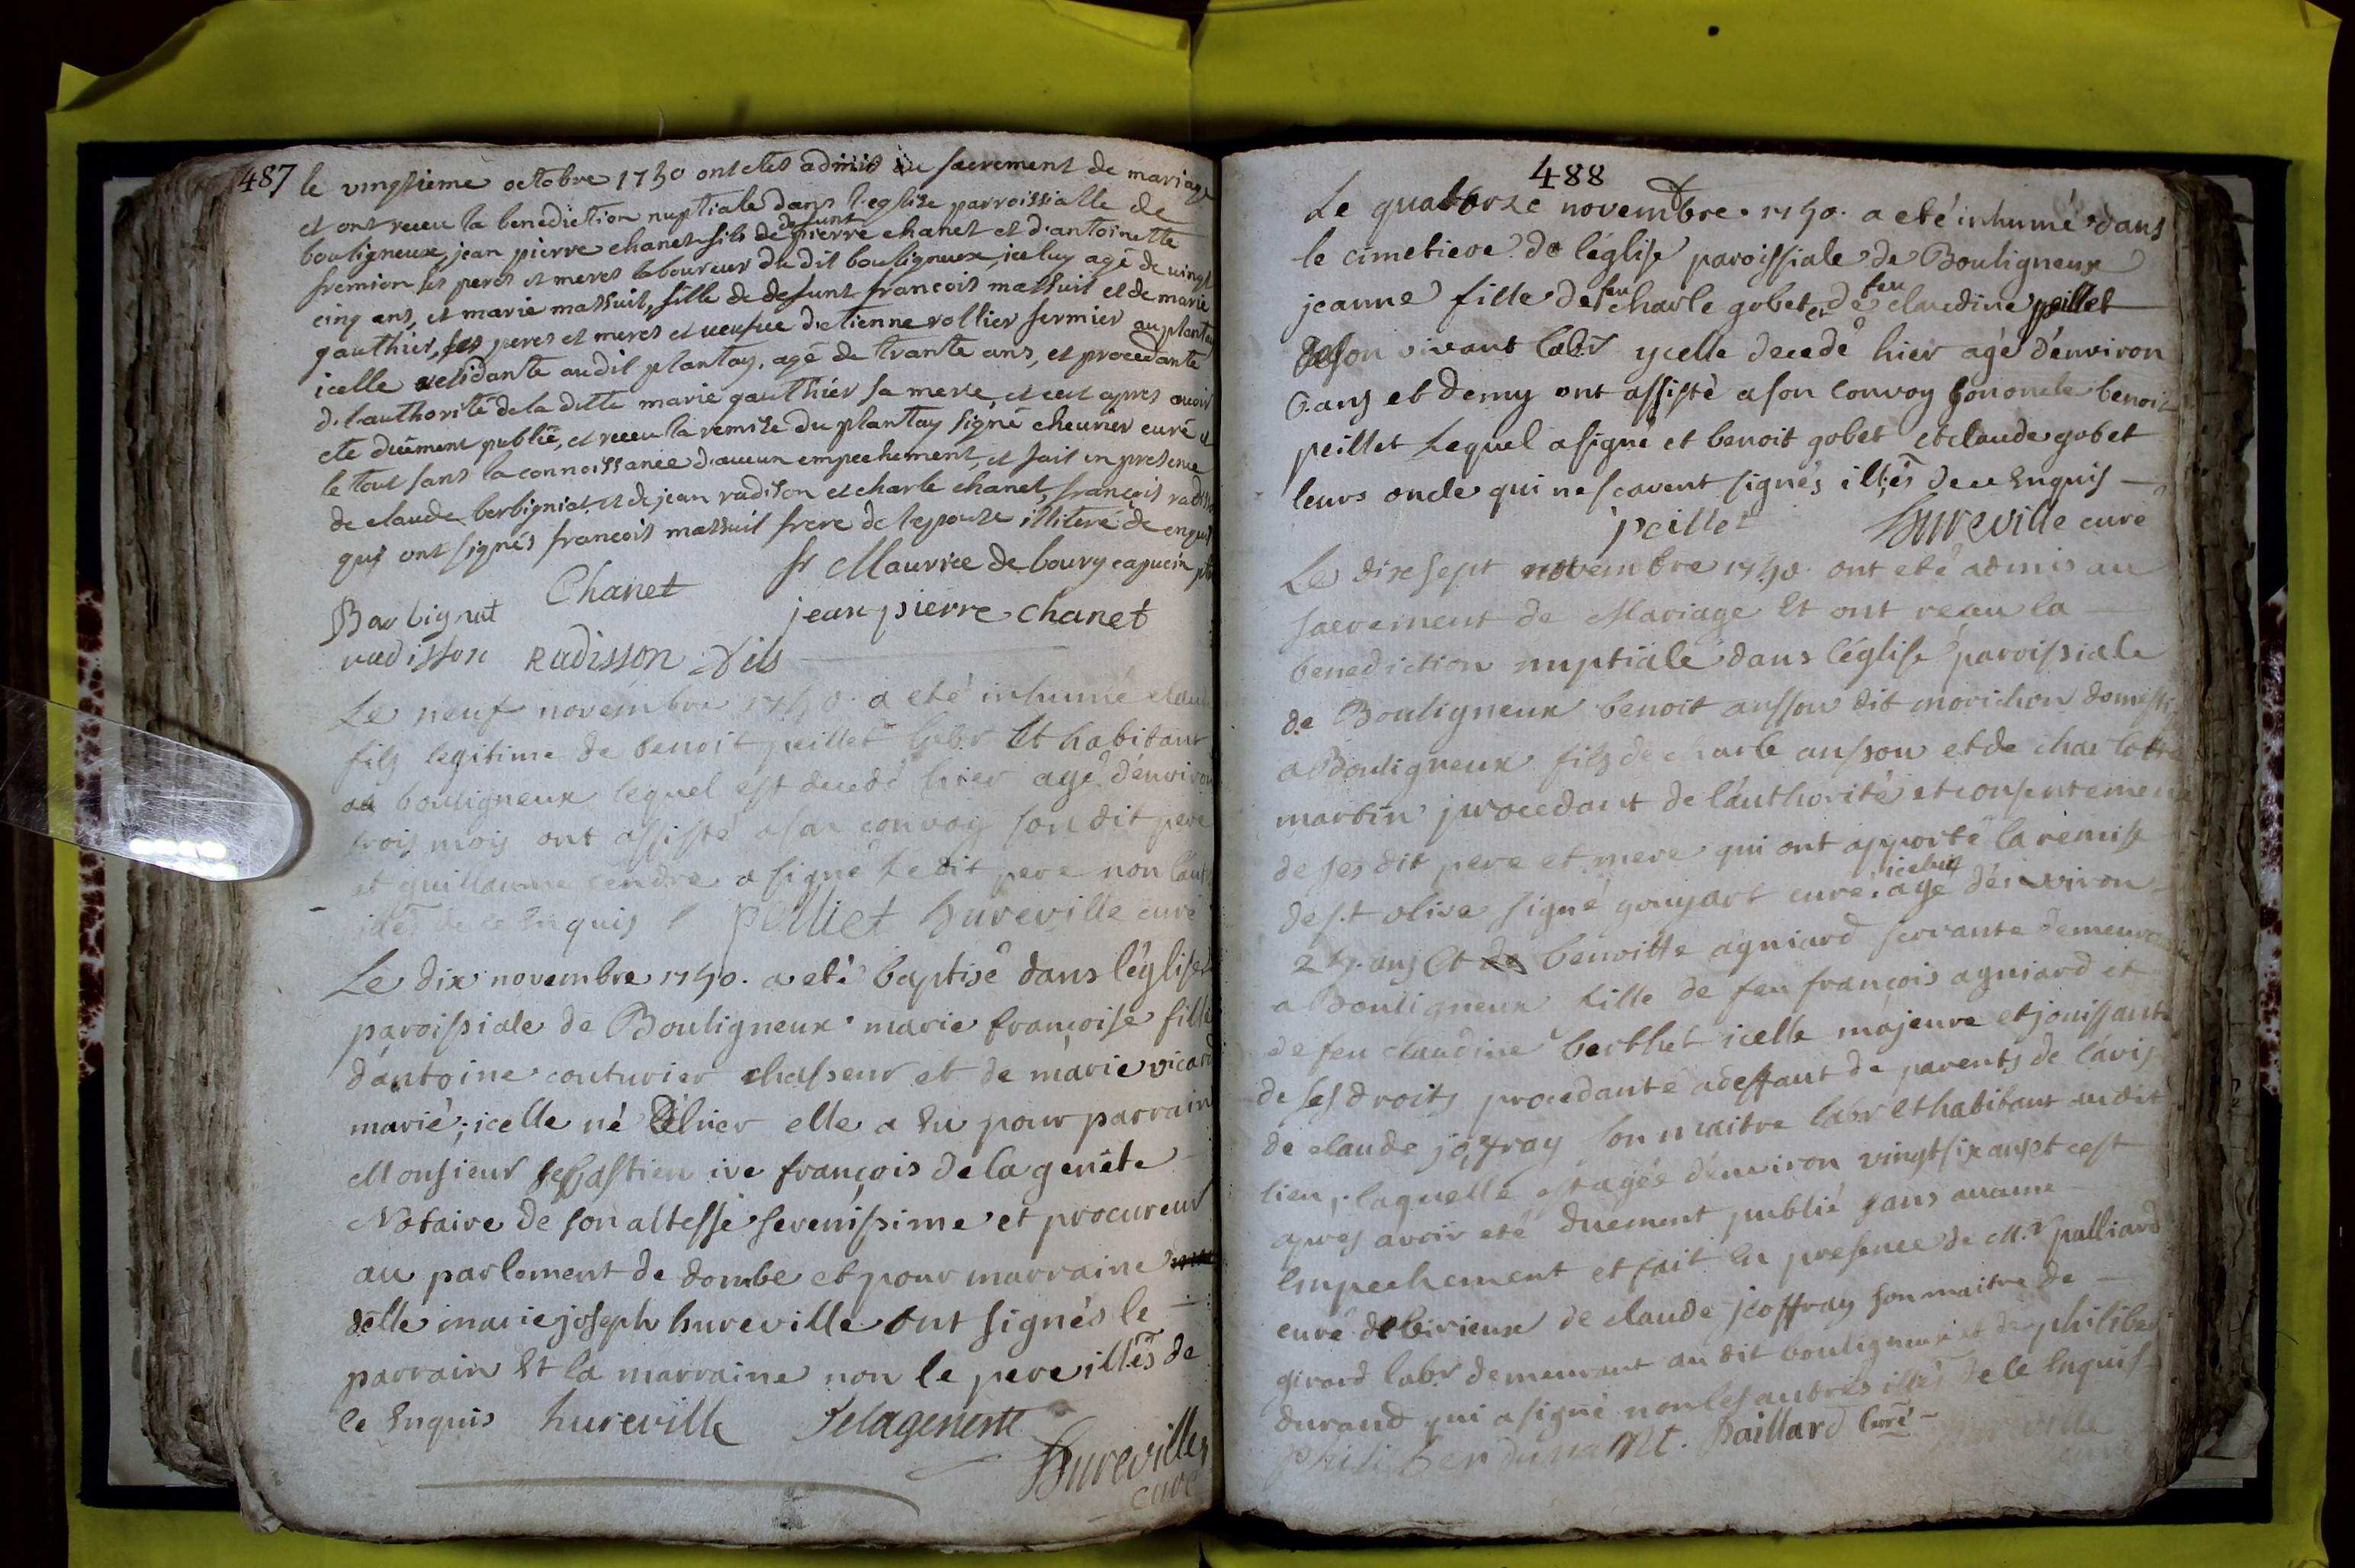 487
le vingtieme octobre 1750 ont etes admis au sacrement de mariage
et ont receu la benediction nuptiale dans l'eglise parroissialle de
bouligneux, jean pierre chanet fils de defunt pierre chanet et d'antoinette
fremion ses peres et meres laboureur du dit bouligneux, iceluy agé de vingt
cinq ans, et marie massuit, fille de defunt francois massuit et de marie
gauthier, ses peres et meres et veufve d'etienne rollier fermier au plantay
icelle residante audit plantay, agé de trante ans, et procedante
d. l'authorité de la ditte marie gauthier sa mere, et ce apres avoir
ete duëment publié, et receu la remise du plantay signé chevrier curé et
le tout sans la connoissance d'aucun empechement, et fait en presence
de claude berbigniat, et de jean radison et charle chanet, françois radisson
qui ont signés francois massuit frere de lepouze illiteré de enquis
fr Maurice de bourg capucin ptre
Chanet
Barbignat
jean pierre chanet
radisson Radisson fils
Le neuf novembre 1750. a eté inhumé claude
fils legitime de benoit peillet labr Et habitant
a bouligneux lequel est decedé hier agé d'environ
trois mois ont assisté a son convoy son dit pere
et guillaume cendre a signé le dit pere non l'autre
illes de ce Enquis peilliet hureville curé
Le dix novembre 1750. a eté baptisé dans l'église
paroissiale de Bouligneux marie françoise fille
d'antoine couturier chasseur et de marie vicard
marié; icelle né d'hier elle a Eu pour parrain
Monsieur sebastien ive françois de la genête
Notaire de son altesse serenissime et procureur
au parlement de dombe et pour marraine
delle marie joseph hureville ont signés le
parrain Et la marraine non le pere illes de
ce Enquis hureville Delagenette
Hureville
curé
488
Le quatorze novembre 1750. a eté inhumé dans
le cimetiere de l'église paroissiale de Bouligneux
jeanne fille de feu charle gobet et de feu claudine peillet
de son vivant labr ycelle decedé hier agé d'environ
6. ans et demy ont assisté a son convoy son oncle benoit
peillet Lequel a signé et benoit gobet et claude gobet
leurs oncle qui ne scavent signés illes de ce Enquis
peillet Hureville curé
Le dixsept novembre 1750. ont eté admis au
sacrement de Mariage Et ont receu la
benediction nuptiale dans l'église paroissiale
de Bouligneux benoit ausson dit morichon domesti
a Bouligneux fils de charle ausson et de charlotte
martin procedant de l'authorité et consentement
de ses dit pere et mere qui ont apporté la remise
de st olive signé goujart curé icelui agé d'environ
27. ans Et benoitte agniard servante demeurante
a Bouligneux fille de feu françois agniard et
de feu claudine berthet icelle majeure et jouissante
de ses droits procedante a deffaut de parents de l'avis
de claude joffray son maitre labr Et habitant audit
lieu, laquelle est agée d'environ vingt six ans et cest
apres avoir eté duement publié sans aucune
Empechement et fait En presence de Mr palliard
curé de birieux de claude jeoffray son maitre de
girard labr demeurant au dit bouligneux et de philiber
durand qui a signé non les autres illes de ce Enquis
philiber durant. Paillard Curé Hureville
curé